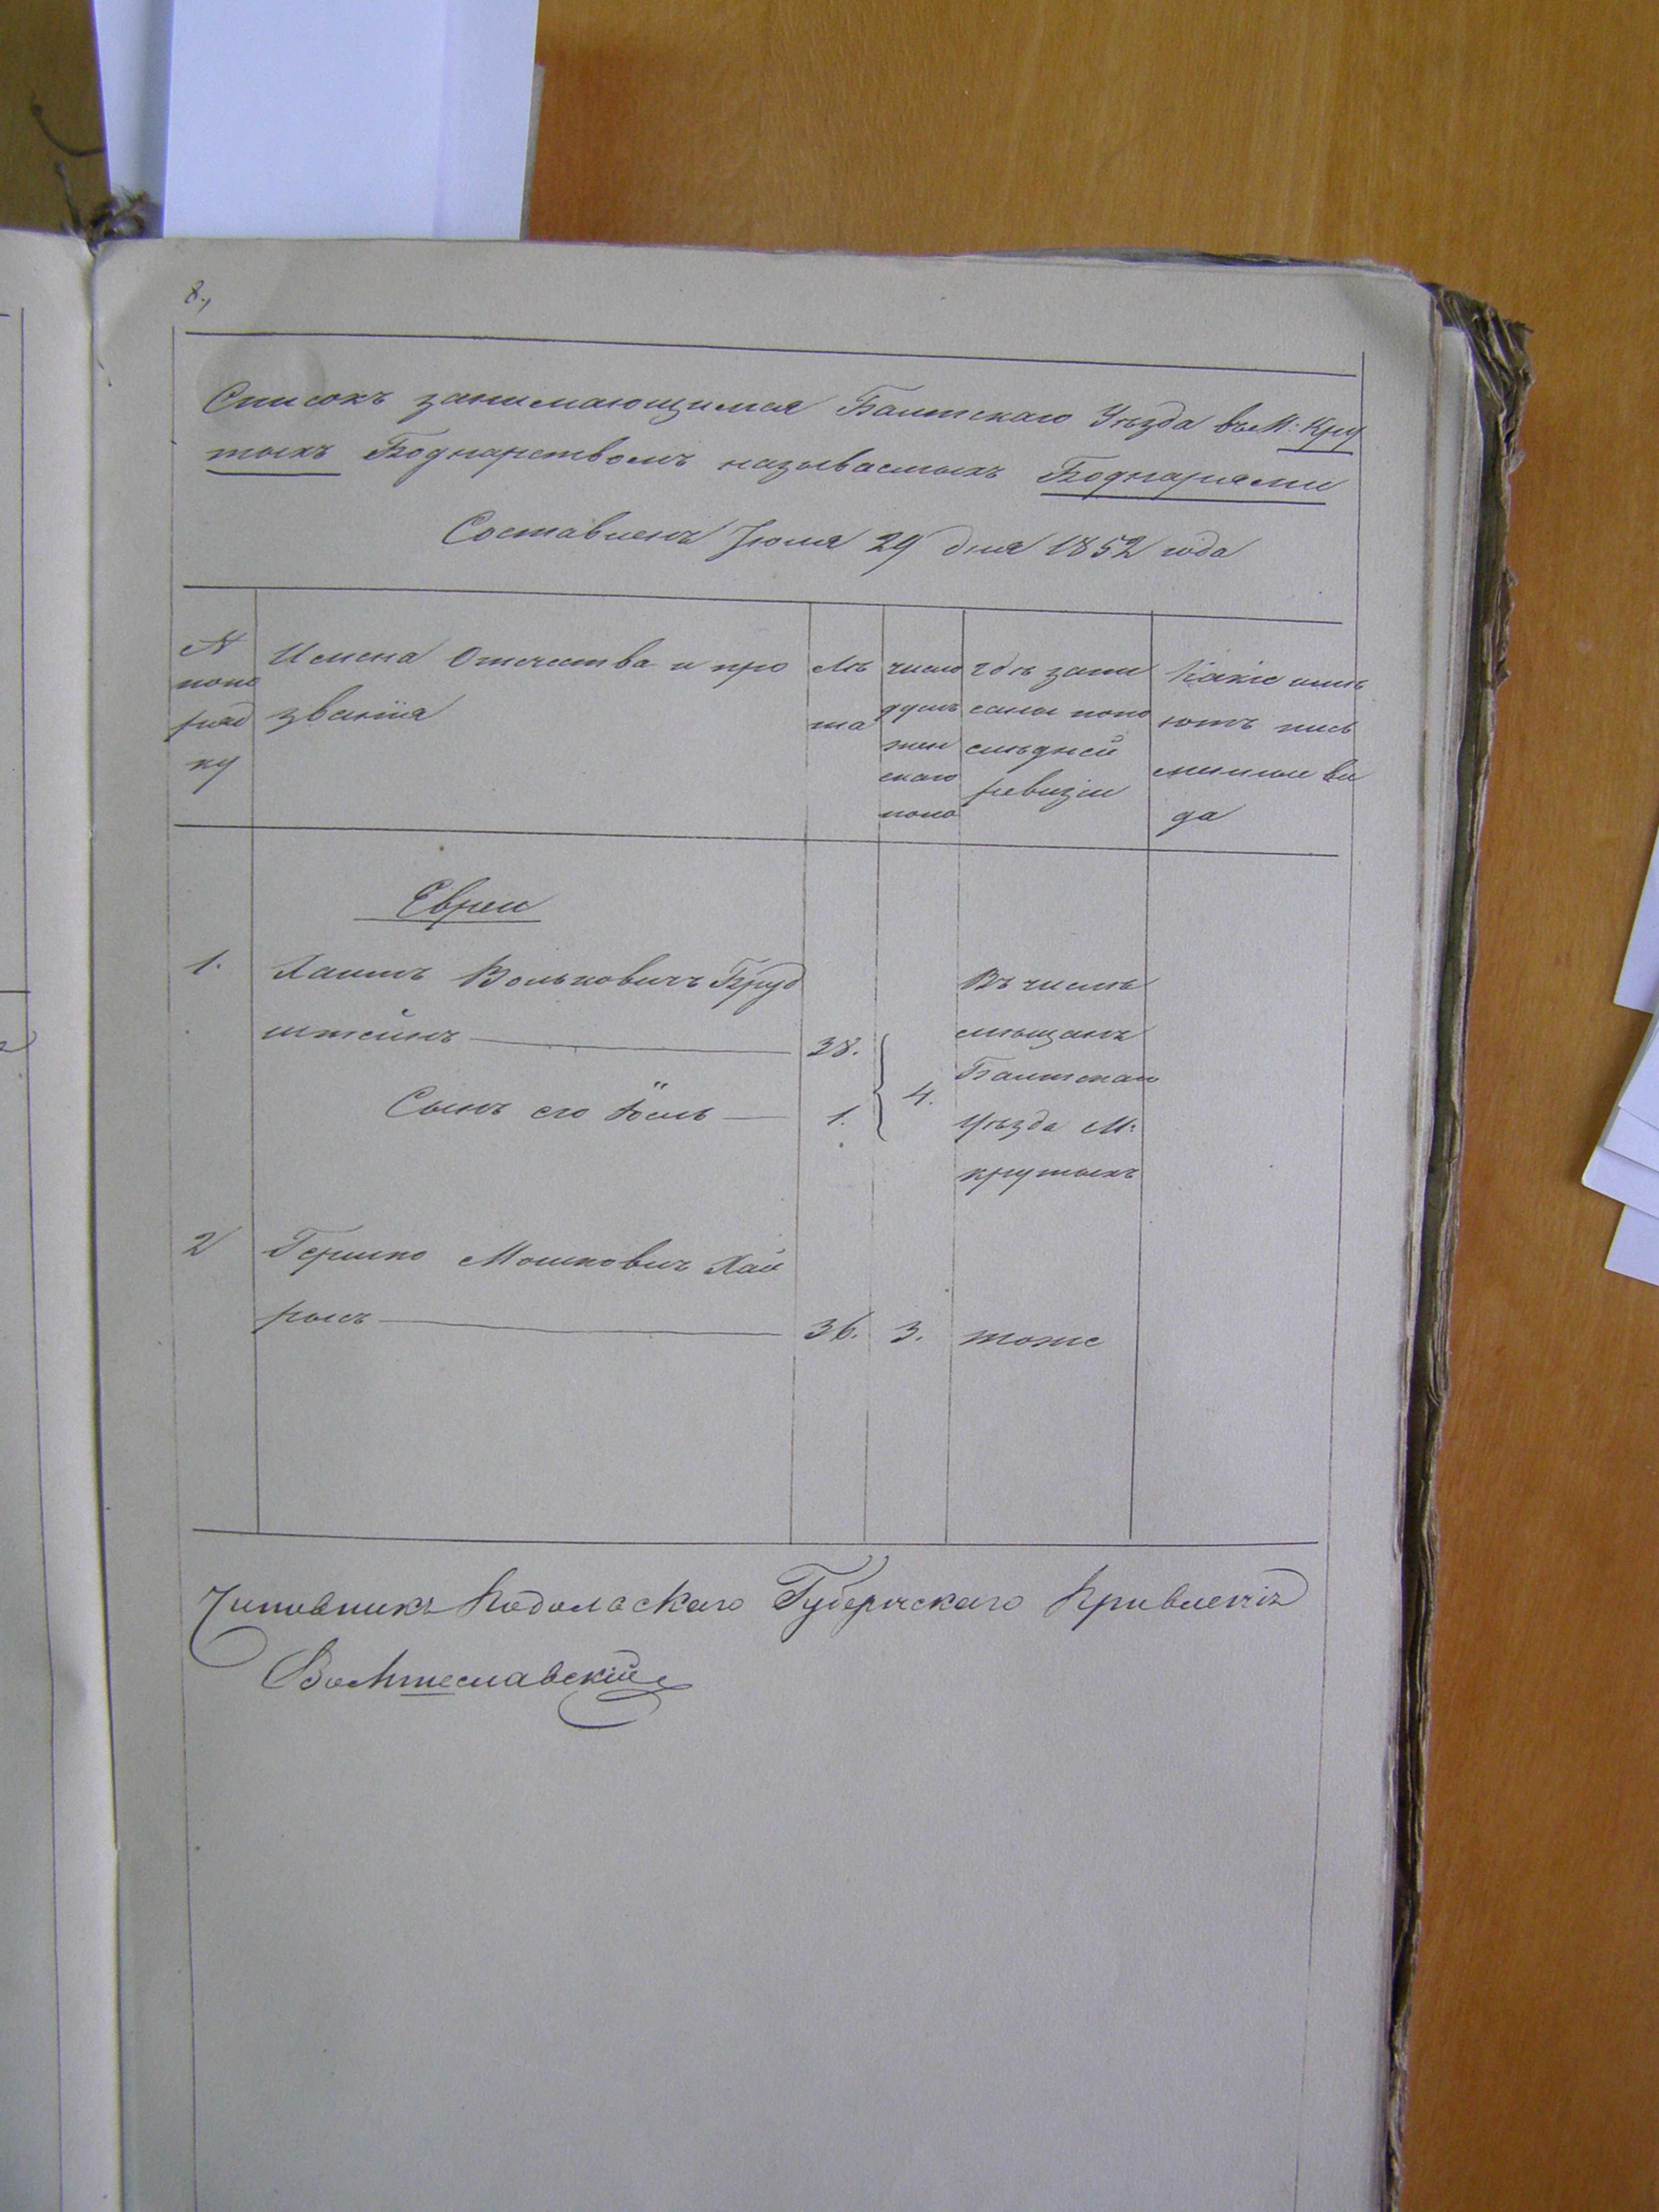 8.,
Списокъ занимающимся Балтскаго Уѣзда въ М: Кру
тыхъ Боднарствомъ называемыхъ Боднарями
Составленъ Іюля 29 дня 1852 года
№ попо ряд ку
Имена Отчества и про званія
Лѣ та
число душъ жен скаго пола
гдѣ запи саны попо слѣдней ревизіи
Какіе имѣ ютъ пись менные ви да
Евреи
1. Хаимъ Вольковичъ Бруд
штейнъ 38.
Сынъ его Іось 1.
4.
Въ числѣ
мѣщанъ
Балтскаго
Уѣзда М:
Крутыхъ
2 Гершко Мошковичъ Хай
ромъ 36. 3. тоже
Чиновникъ Подольскаго Губернскаго Правленія